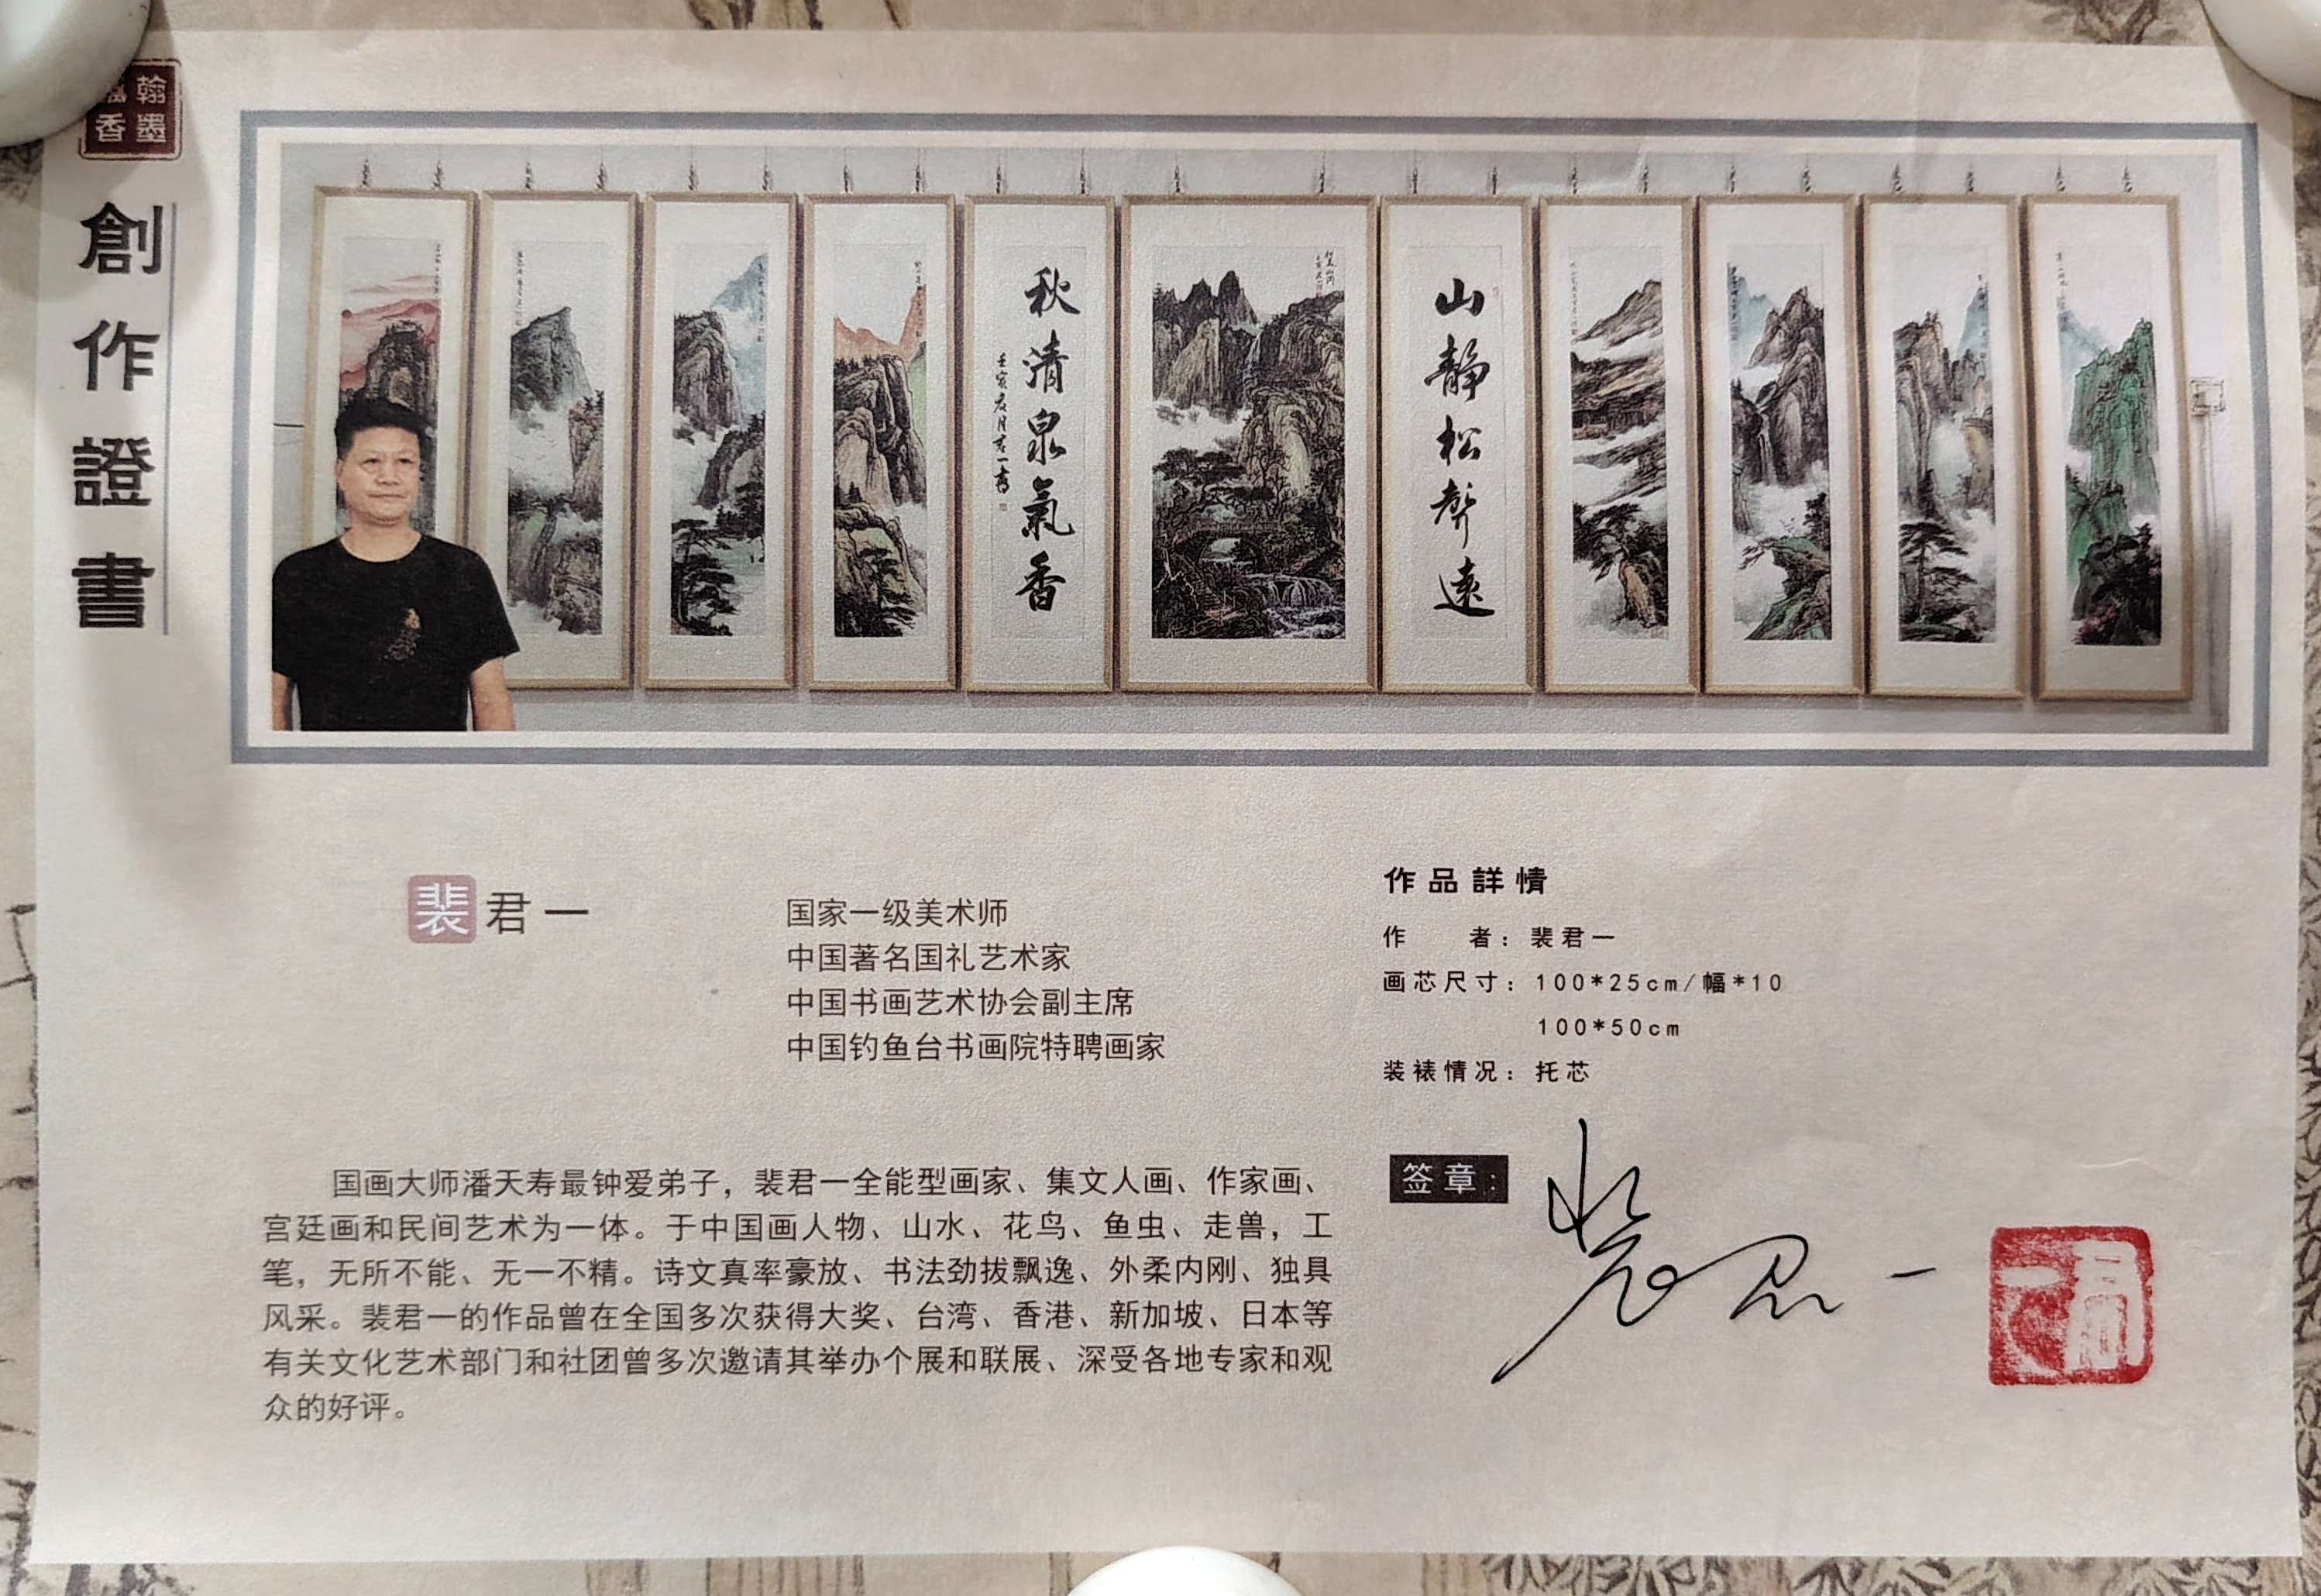 翰墨
香
創作證書
山静松聲遠
秋清泉氣香
裴君一
国家一级美术师
中国著名国礼艺术家
中国书画艺术协会副主席
中国钓鱼台书画院特聘画家
国画大师潘天寿最钟爱弟子，裴君一全能型画家、集文人画、作家画、
宫廷画和民间艺术为一体。于中国画人物、山水、花鸟、鱼虫、走兽，工
笔，无所不能、无一不精。诗文真率豪放、书法劲拔飘逸、外柔内刚、独具
风采。裴君一的作品曾在全国多次获得大奖、台湾、香港、新加坡、日本等
有关文化艺术部门和社团曾多次邀请其举办个展和联展、深受各地专家和观
众的好评。
作品詳情
作　　者：裴君一
画芯尺寸：100*25cm/幅*10
100*50cm
装裱情况：托芯
签章：
裴君一